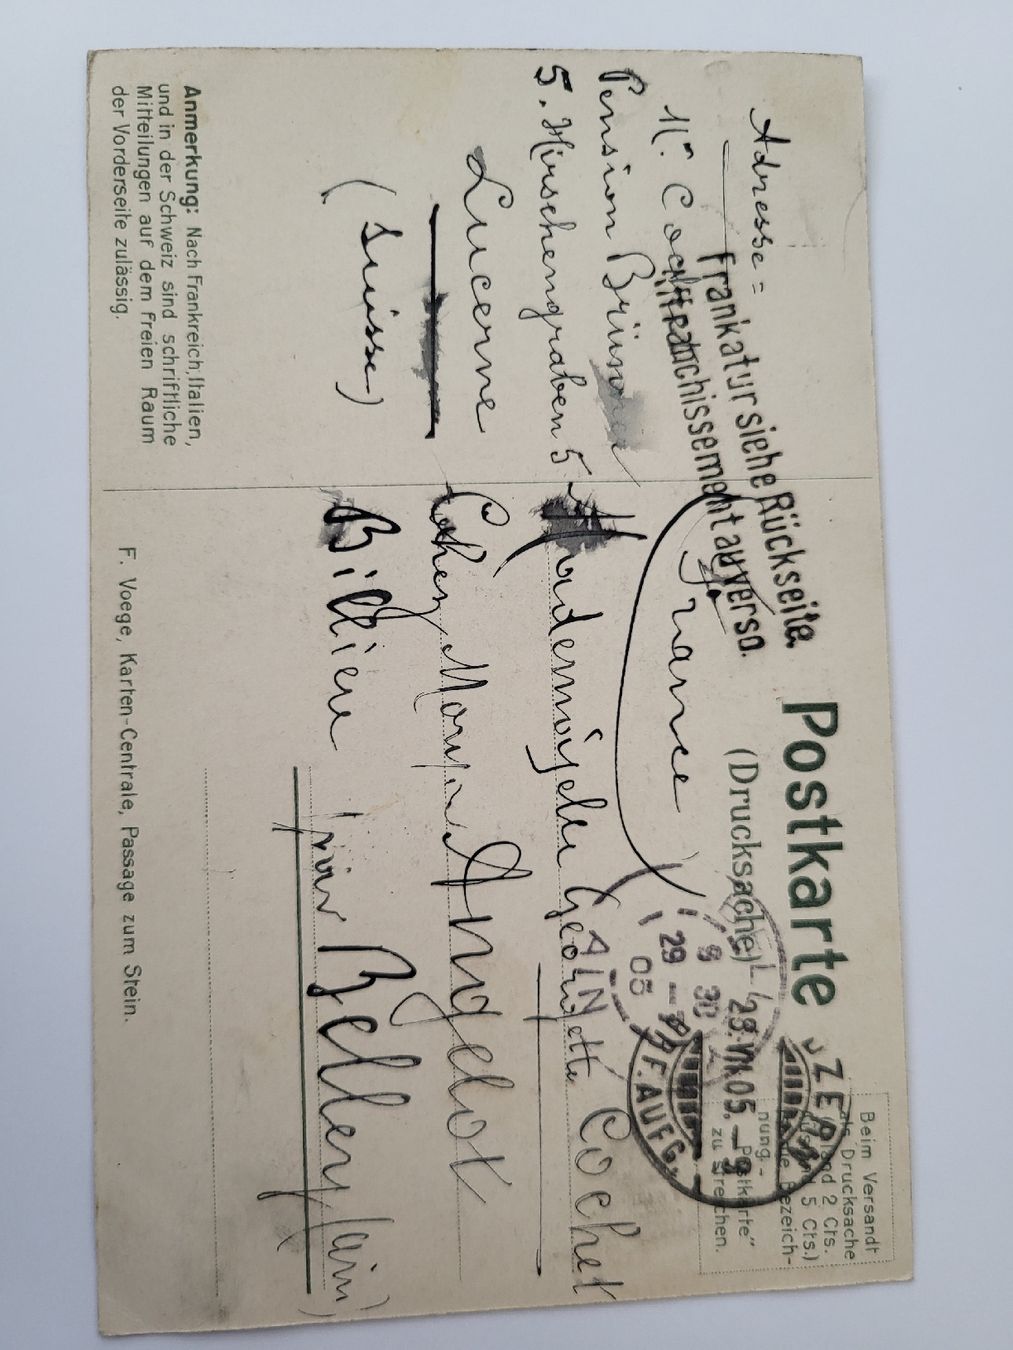 Postkarte
(Drucksache)
Beim Versandt
als Drucksache
(Inland 2 Cts.
Ausland 5 Cts.)
ist die Bezeich-
nung - "Postkarte"
zu streichen.
Frankatur siehe Rückseite.
Affranchissement au verso.
Adresse =
Mr. Cochet
Pension Brünner
5. Hirschengraben 5
Lucerne
(Suisse)
France
Mademoiselle Georgette Cochet
Chez Angelot
Billieu
par Belley (ain)
LUZERN
29.VII.05.-9
BRF.AUFG.
AIN
8 30
29 -
05
Anmerkung: Nach Frankreich, Italien,
und in der Schweiz sind schriftliche
Mitteilungen auf dem freien Raum
der Vorderseite zulässig.
F. Voege, Karten-Centrale, Passage zum Stein.